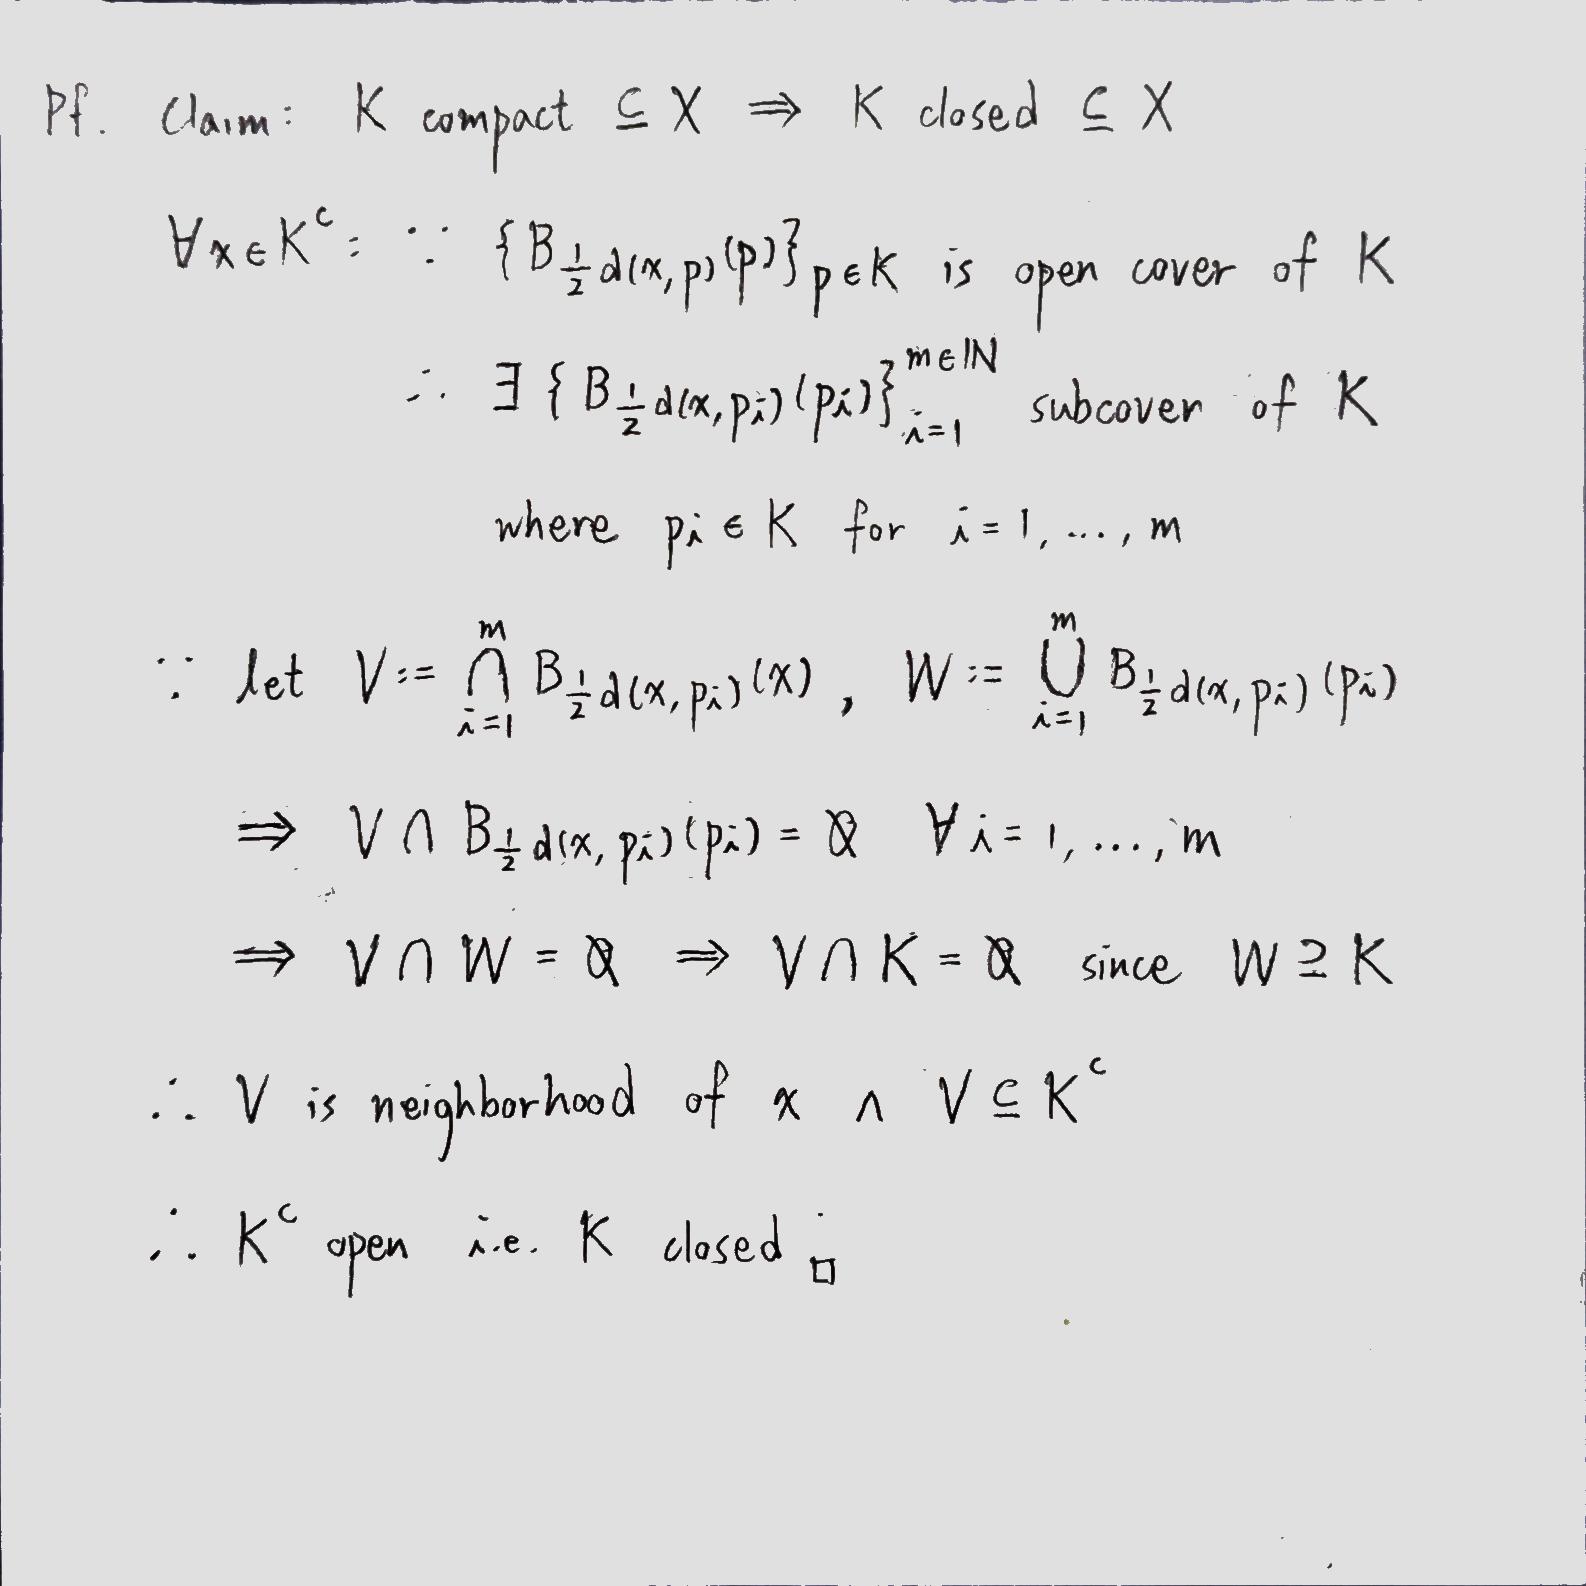 Pf. Claim: K compact ⊆ X ⇒ K closed ⊆ X
∀x∈K^c: ∵ {B_{\frac{1}{2}d(x,p)}(p)}_{p∈K} is open cover of K
∴ ∃ {B_{\frac{1}{2}d(x,p_i)}(p_i)}_{i=1}^{m∈ℕ} subcover of K
where p_i ∈ K for i = 1, ..., m
∵ let V := ⋂_{i=1}^{m} B_{\frac{1}{2}d(x,p_i)}(x), W := ⋃_{i=1}^{m} B_{\frac{1}{2}d(x,p_i)}(p_i)
⇒ V ∩ B_{\frac{1}{2}d(x,p_i)}(p_i) = ∅ ∀ i = 1, ..., m
⇒ V ∩ W = ∅ ⇒ V ∩ K = ∅ since W ⊇ K
∴ V is neighborhood of x ∧ V ⊆ K^c
∴ K^c open i.e. K closed □